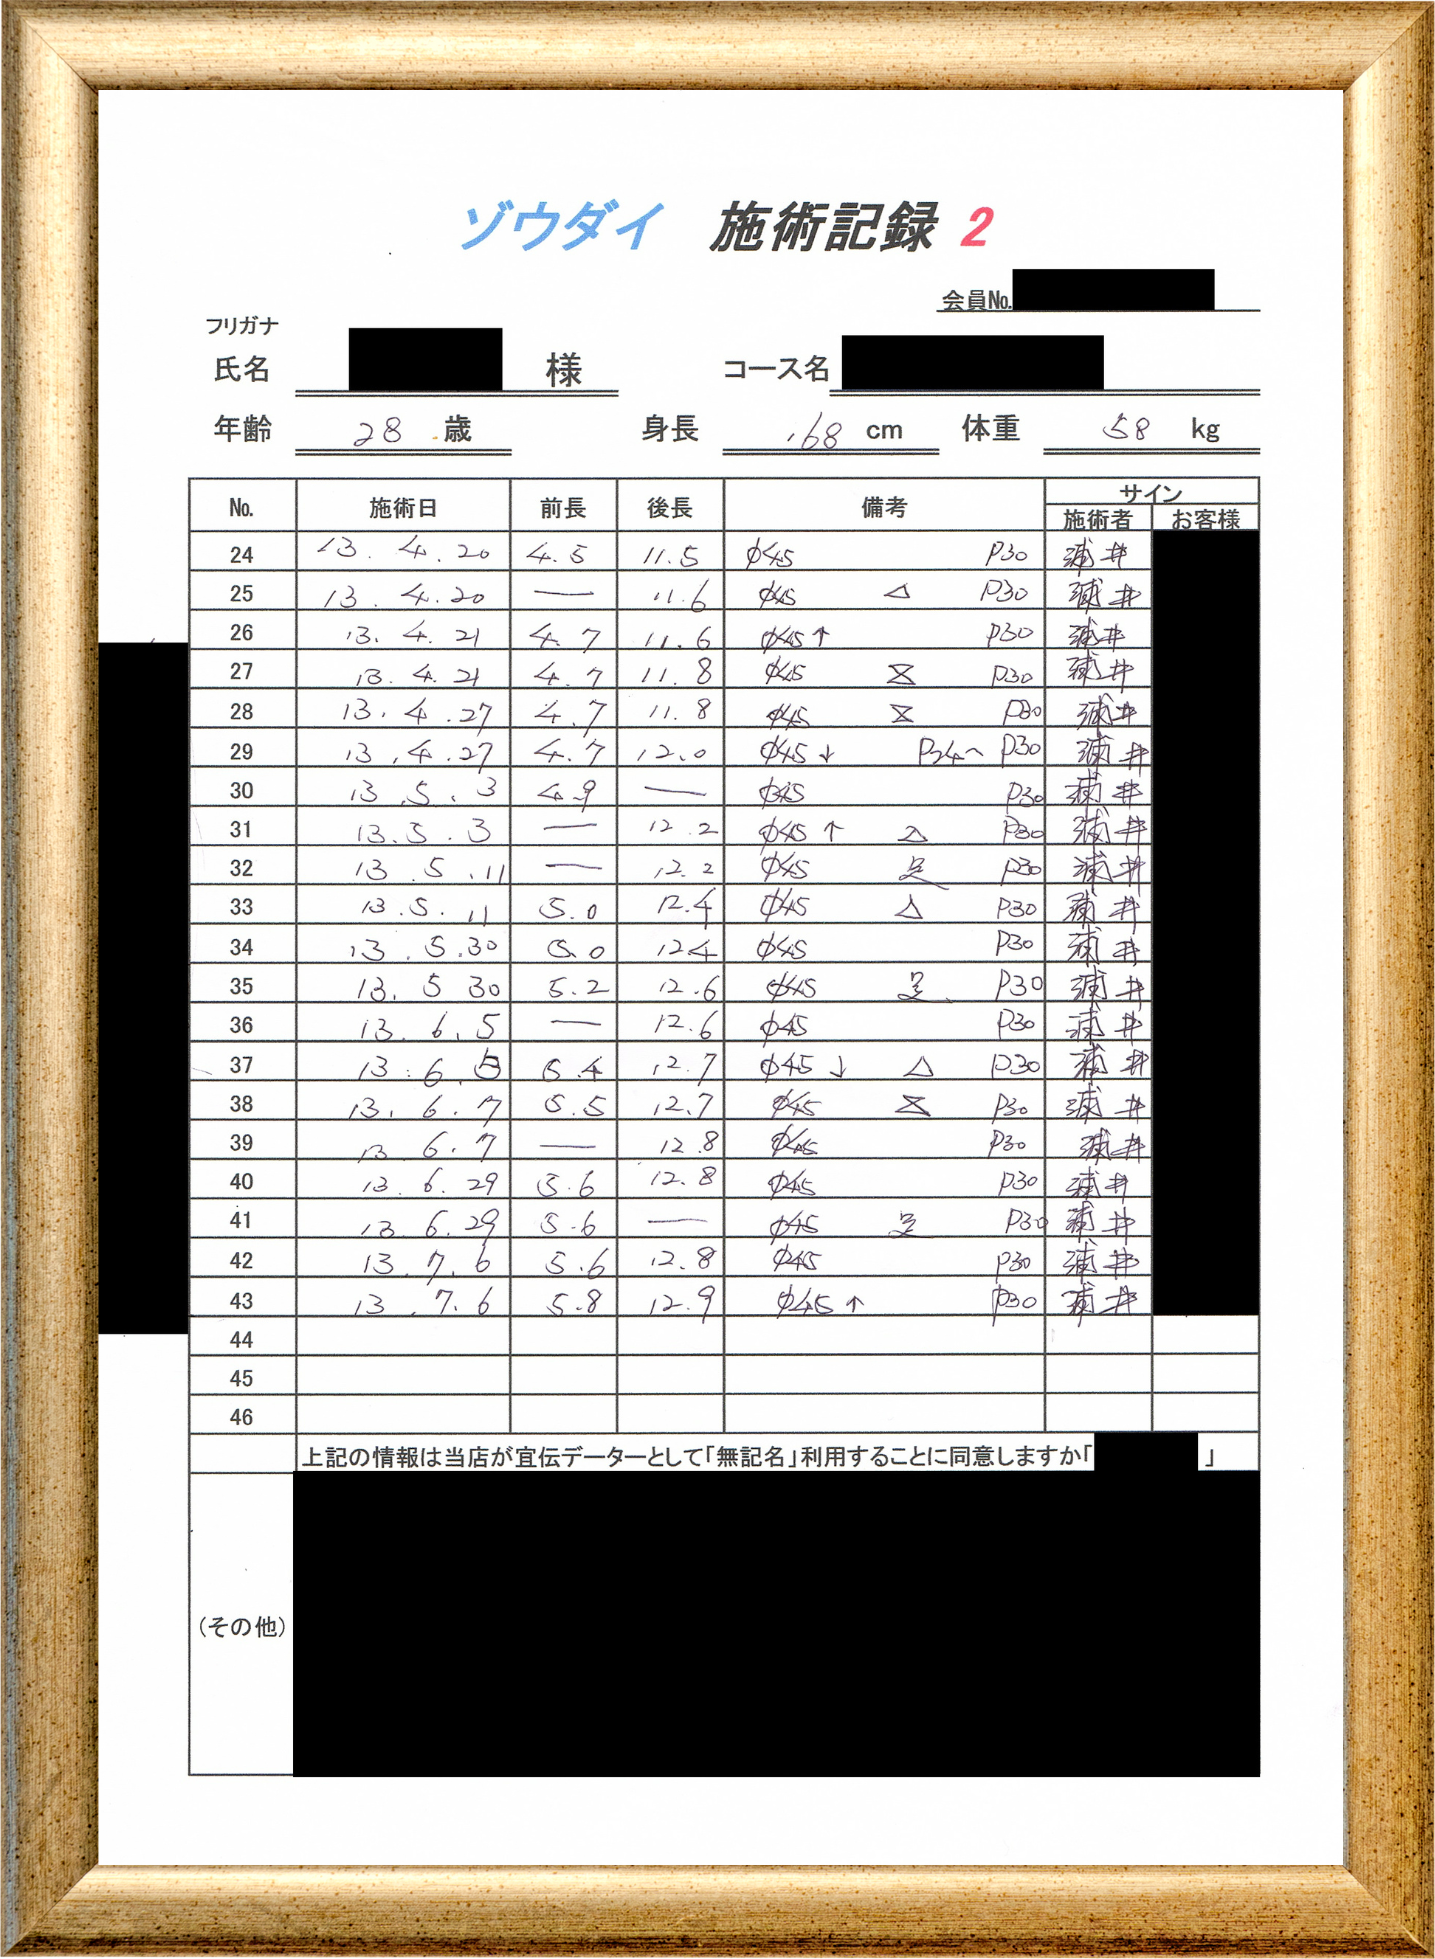 ゾウダイ 施術記録 2
会員No.
フリガナ
氏名 様 コース名
年齢 28 歳 身長 168 cm 体重 58 kg
No. 施術日 前長 後長 備考 サイン
施術者 お客様
24 13. 4. 20 4.5 11.5 φ45 P30 浦井
25 13. 4. 20 — 11.6 φ45 △ P30 浦井
26 13. 4. 21 4.7 11.6 φ45↑ P30 浦井
27 13. 4. 21 4.7 11.8 φ45 P30 浦井
28 13. 4. 27 4.7 11.8 φ45 P30 浦井
29 13. 4. 27 4.7 12.0 φ45↓ P34~P30 浦井
30 13. 5. 3 4.9 — φ45 P30 浦井
31 13. 5. 3 — 12.2 φ45↑ △ P30 浦井
32 13. 5. 11 — 12.2 φ45 足 P30 浦井
33 13. 5. 11 5.0 12.4 φ45 △ P30 浦井
34 13. 5. 30 5.0 12.4 φ45 P30 浦井
35 13. 5 30 5.2 12.6 φ45 足 P30 浦井
36 13. 6. 5 — 12.6 φ45 P30 浦井
37 13. 6. 5 5.4 12.7 φ45↓ △ P30 浦井
38 13. 6. 7 5.5 12.7 φ45 P30 浦井
39 13 6. 7 — 12.8 φ45 P30 浦井
40 13. 6. 29 5.6 12.8 φ45 P30 浦井
41 13. 6. 29 5.6 — φ45 足 P30 浦井
42 13. 7. 6 5.6 12.8 φ45 P30 浦井
43 13. 7. 6 5.8 12.9 φ45↑ P30 浦井
44
45
46
上記の情報は当店が宣伝データーとして「無記名」利用することに同意しますか「 」
(その他)